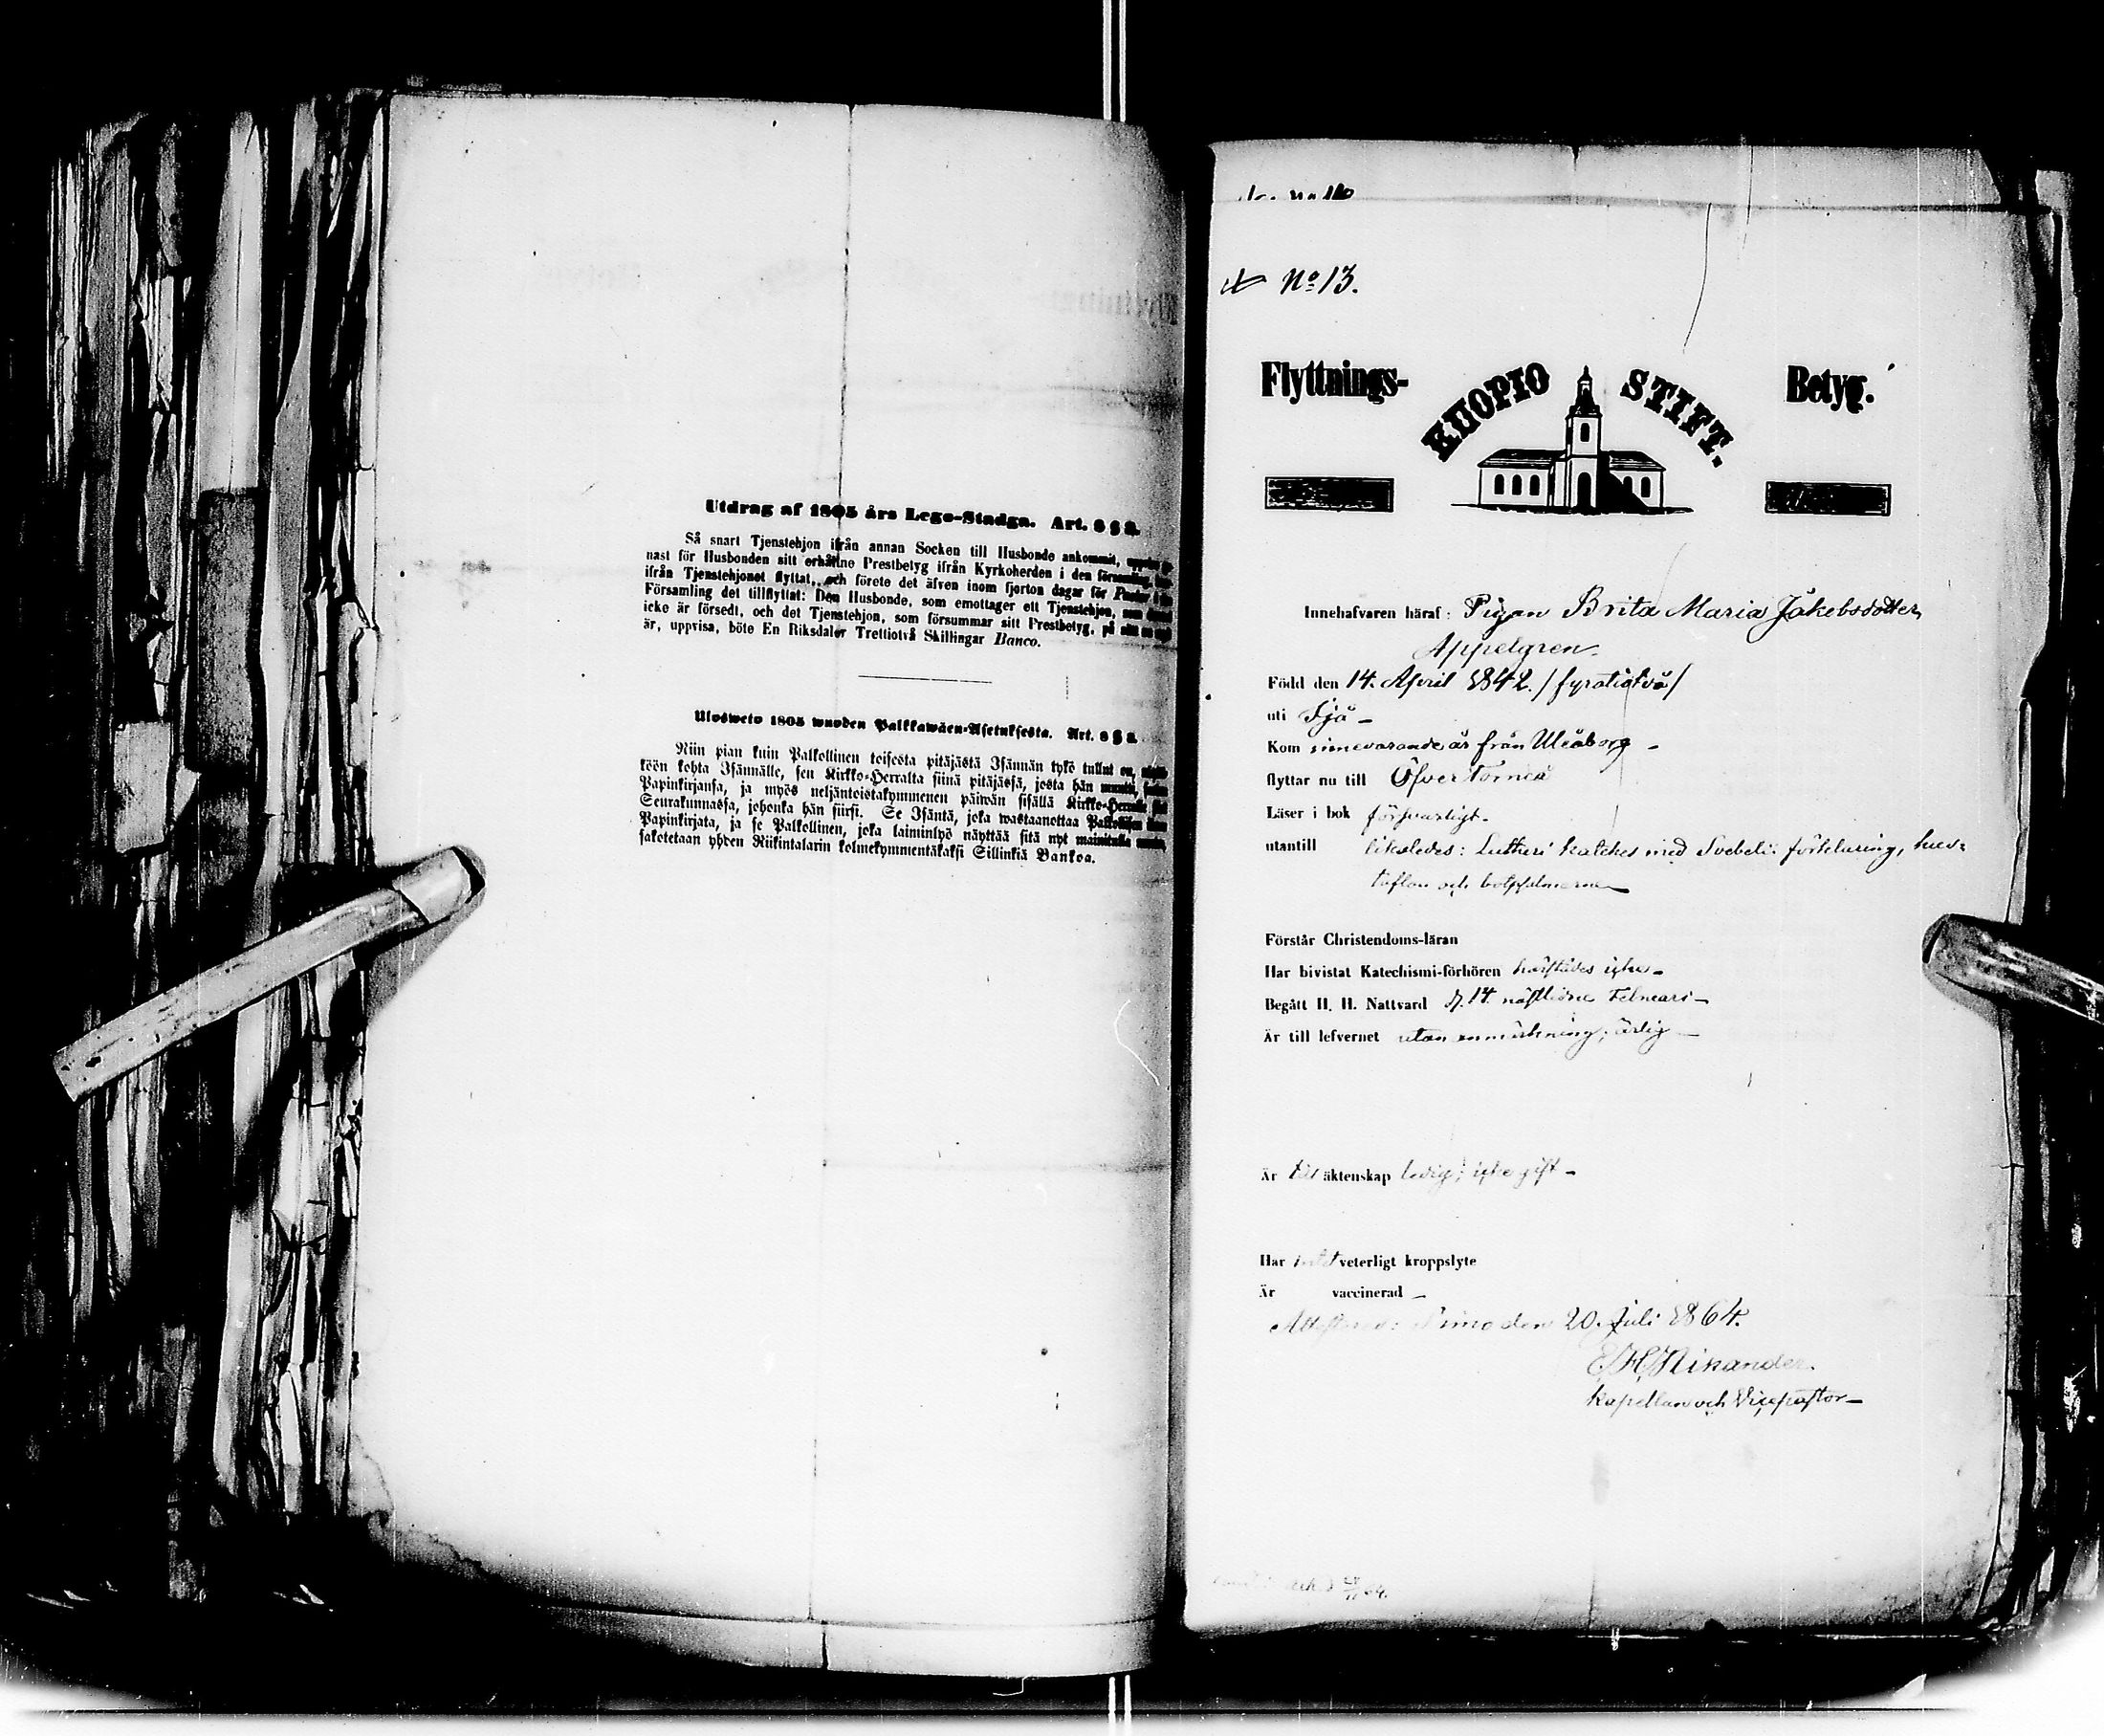 Utdrag af 1805 års Lego-Stadga. Art. 8 § 2.
Så snart Tjenstehjon ifrån annan Socken till Husbonde ankommit,
nast för Husbonden sitt erhållne Prestbetyg ifrån Kyrkoherden i den
ifrån Tjenstehjonet flyttat, och förete det äfven inom fjorton dagar för
Församling det tillflyttat: Den Husbonde, som emottager ett Tjenstehjon, som
icke är försedt, och det Tjenstehjon, som försummar sitt Prestbetyg, på
är, uppvisa, böte En Riksdaler Trettiotvå Skillingar Banco.
Ulosweto 1805 wuoden Palkkawäen-Asetuksesta. Art. 8 § 2.
Niin pian kuin Palkollinen toisesta pitäjästä Isännän tykö tullut on,
köön kohta Isännälle, sen Kirkko-Herralta siinä pitäjässä, josta hän
Papinkirjansa, ja myös neljäntoistakymmenen päiwän sisällä Kirkko-Herralle
Seurakunnassa, johonka hän siirsi. Se Isäntä, joka wastaanottaa Palkollisen
Papinkirjata, ja se Palkollinen, joka laiminlyö näyttää sitä nyt mainitulla
sakotetaan yhden Riikintalarin kolmekymmentäkaksi Sillinkiä Bankoa.
No 13.
Flyttnings- KUOPIO STIFT. Betyg.
Innehafvaren häraf: Pigan Brita Maria Jakobsdotter
Appelgren.
Född den 14. April 1842. / fyratiotvå /
uti Ijo –
Kom innevarande år från Uleåborg –
flyttar nu till Öfver Torneå
Läser i bok försvarligt.
utantill likaledes: Lutheri Kateches med Svebelii förklaring, hus-
taflan och botpsalmerna
Förstår Christendoms-läran
Har bivistat Katechismi-förhören härstädes icke –
Begått H. H. Nattvard d. 14. nästlidne Februari –
Är till lefvernet utan anmärkning; ärlig –
Är till äktenskap ledig; icke gift –
Har intet veterligt kroppslyte
Är vaccinerad –
Attesterar: Simo den 20. Juli 1864.
E H Nikander
Kapellan och Vicepastor –